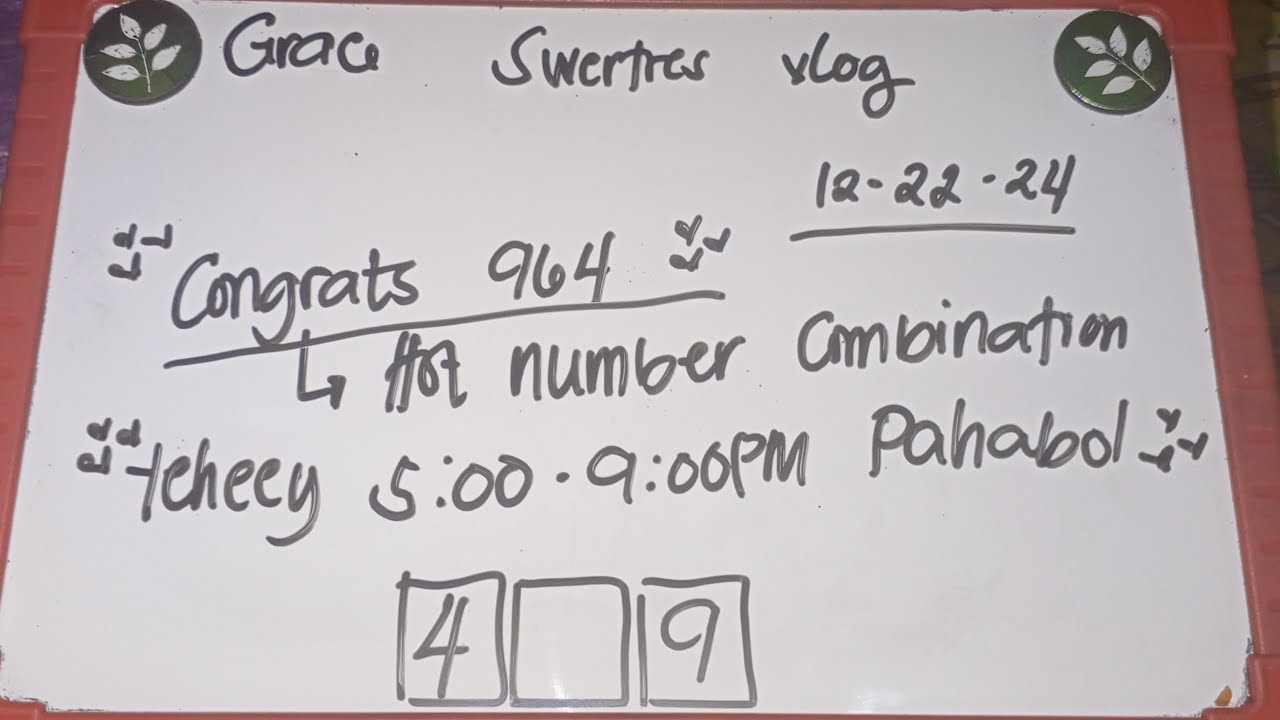 Grace Swertres vlog
12-22-24
Congrats 964
↳ Hot number Combination
Yeheey 5:00-9:00PM Pahabol
4 9